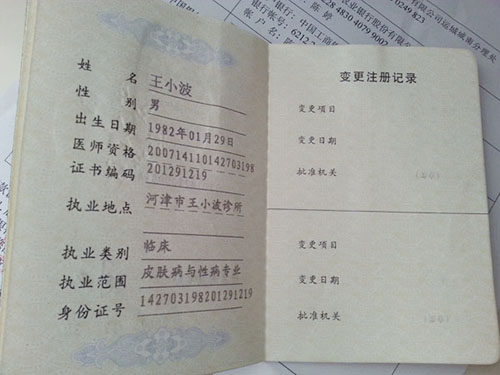 农业银行股份有限公司运城城南分理处
228 4830 4079 9002 0249 823
陈 婷
银行：中国工商
帐号：6212
帐户名：陈
姓 名 王小波
性 别 男
出生日期 1982年01月29日
医师资格 200714110142703198
证书编码 201291219
执业地点 河津市王小波诊所
执业类别 临床
执业范围 皮肤病与性病专业
身份证号 142703198201291219
变更注册记录
变更项目
变更日期
批准机关
变更项目
变更日期
批准机关